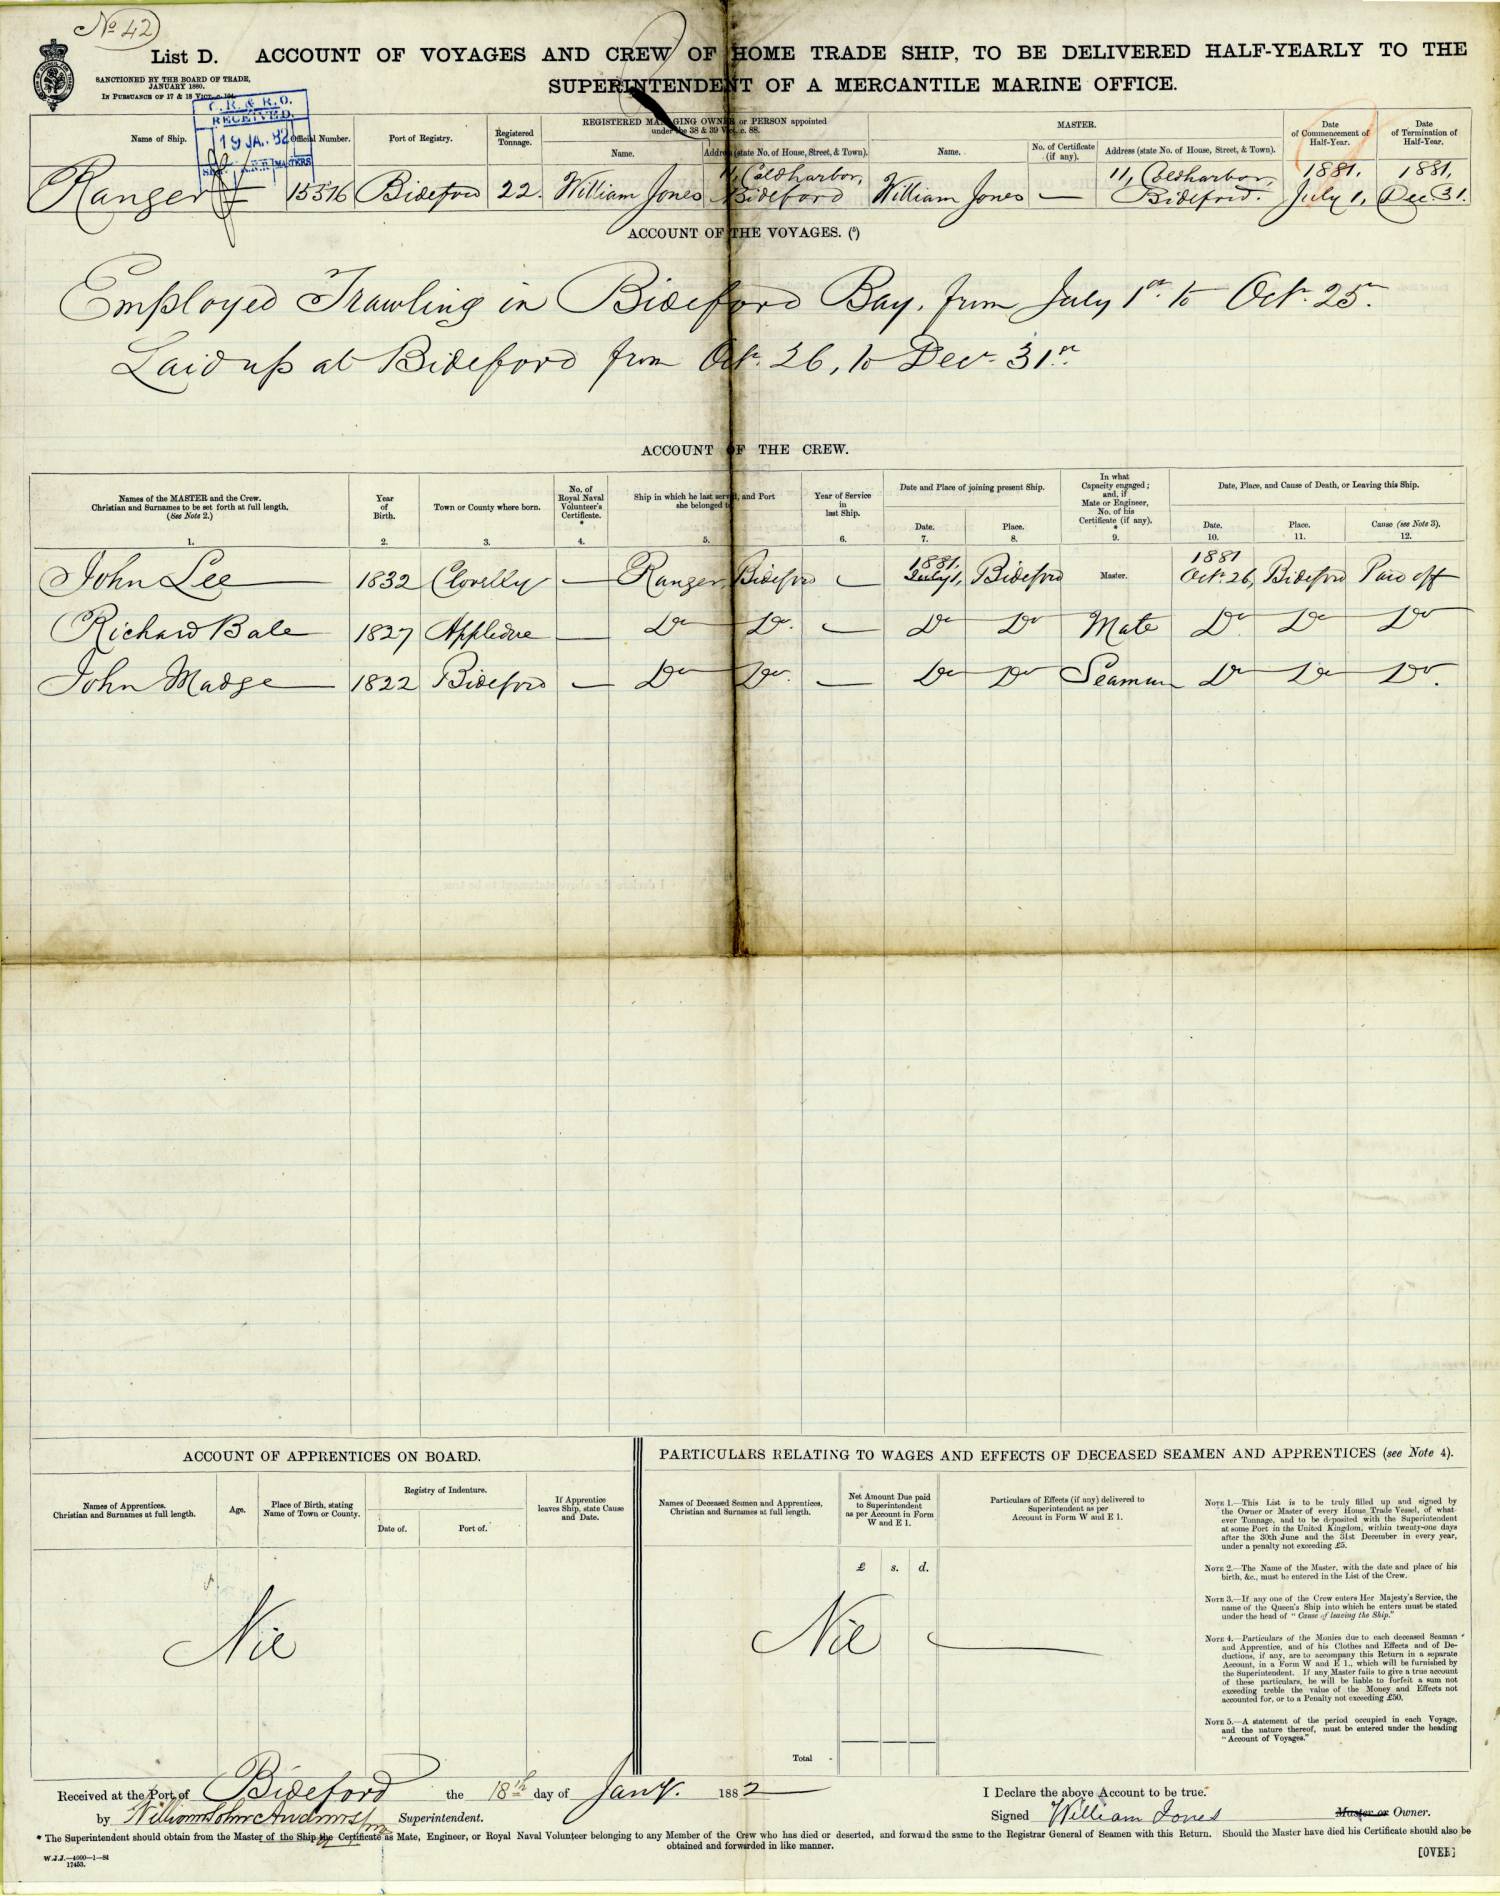 No 42
List D. ACCOUNT OF VOYAGES AND CREW OF HOME TRADE SHIP, TO BE DELIVERED HALF-YEARLY TO THE
SUPERINTENDENT OF A MERCANTILE MARINE OFFICE.
SANCTIONED BY THE BOARD OF TRADE,
JANUARY 1880.
IN PURSUANCE OF 17 & 18 VICT. c. 104.
RECEIVED
19 JA. 82
Name of Ship. Official Number. Port of Registry. Registered Tonnage. REGISTERED MANAGING OWNER or PERSON appointed under the 38 & 39 Vict. c. 88. MASTER. Date of Commencement of Half-Year. Date of Termination of Half-Year.
Name. Address (state No. of House, Street, & Town). Name. No. of Certificate (if any). Address (state No. of House, Street, & Town).
Ranger 15376 Bideford 22. William Jones 11, Coldharbor, Bideford William Jones — 11, Coldharbor, Bideford. 1881. July 1, 1881, Dec 31.
ACCOUNT OF THE VOYAGES. (5)
Employed Trawling in Bideford Bay, from July 1st to Octr 25th
Laid up at Bideford from Octr 26, to Decr 31st
ACCOUNT OF THE CREW.
Names of the MASTER and the Crew. Christian and Surnames to be set forth at full length. (See Note 2.) Year of Birth. Town or County where born. No. of Royal Naval Volunteer's Certificate. * Ship in which he last served, and Port she belonged to. Year of Service in last Ship. Date and Place of joining present Ship. In what Capacity engaged; and, if Mate or Engineer, No. of his Certificate (if any). * Date, Place, and Cause of Death, or Leaving this Ship.
Date. Place. Date. Place. Cause (see Note 3).
1. 2. 3. 4. 5. 6. 7. 8. 9. 10. 11. 12.
John Lee 1832 Clovelly — Ranger Bideford — 1881, July 1, Bideford Master. 1881 Octr 26, Bideford Paid off
Richard Bale 1827 Appledore — Do Do — Do Do Mate Do Do Do
John Madge 1822 Bideford — Do Do — Do Do Seaman Do Do Do
ACCOUNT OF APPRENTICES ON BOARD.
Names of Apprentices. Christian and Surnames at full length. Age. Place of Birth, stating Name of Town or County. Registry of Indenture. If Apprentice leaves Ship, state Cause and Date.
Date of. Port of.
Nil
PARTICULARS RELATING TO WAGES AND EFFECTS OF DECEASED SEAMEN AND APPRENTICES (see Note 4).
Names of Deceased Seamen and Apprentices, Christian and Surnames at full length. Net Amount Due paid to Superintendent as per Account in Form W and E 1. Particulars of Effects (if any) delivered to Superintendent as per Account in Form W and E 1.
£ s. d.
Nil
Total
NOTE 1.—This List is to be truly filled up and signed by
the Owner or Master of every Home Trade Vessel, of what
ever Tonnage, and to be deposited with the Superintendent
at some Port in the United Kingdom, within twenty-one days
after the 30th June and the 31st December in every year,
under a penalty not exceeding £5.
NOTE 2.—The Name of the Master, with the date and place of his
birth, &c., must be entered in the List of the Crew.
NOTE 3.—If any one of the Crew enters Her Majesty's Service, the
name of the Queen's Ship into which he enters must be stated
under the head of "Cause of leaving the Ship."
NOTE 4.—Particulars of the Monies due to each deceased Seaman
and Apprentice, and of his Clothes and Effects and of De-
ductions, if any, are to accompany this Return in a separate
Account, in a Form W and E 1., which will be furnished by
the Superintendent. If any Master fails to give a true account
of these particulars, he will be liable to forfeit a sum not
exceeding treble the value of the Money and Effects not
accounted for, or to a Penalty not exceeding £50.
NOTE 5.—A statement of the period occupied in each Voyage,
and the nature thereof, must be entered under the heading
"Account of Voyages."
Received at the Port of Bideford the 18th day of Jany. 1882
by William John Superintendent.
I Declare the above Account to be true.
Signed William Jones Master or Owner.
* The Superintendent should obtain from the Master of the Ship the Certificate as Mate, Engineer, or Royal Naval Volunteer belonging to any Member of the Crew who has died or deserted, and forward the same to the Registrar General of Seamen with this Return. Should the Master have died his Certificate should also be
obtained and forwarded in like manner.
W.J.J.—4000—1—81
17453.
[OVER]